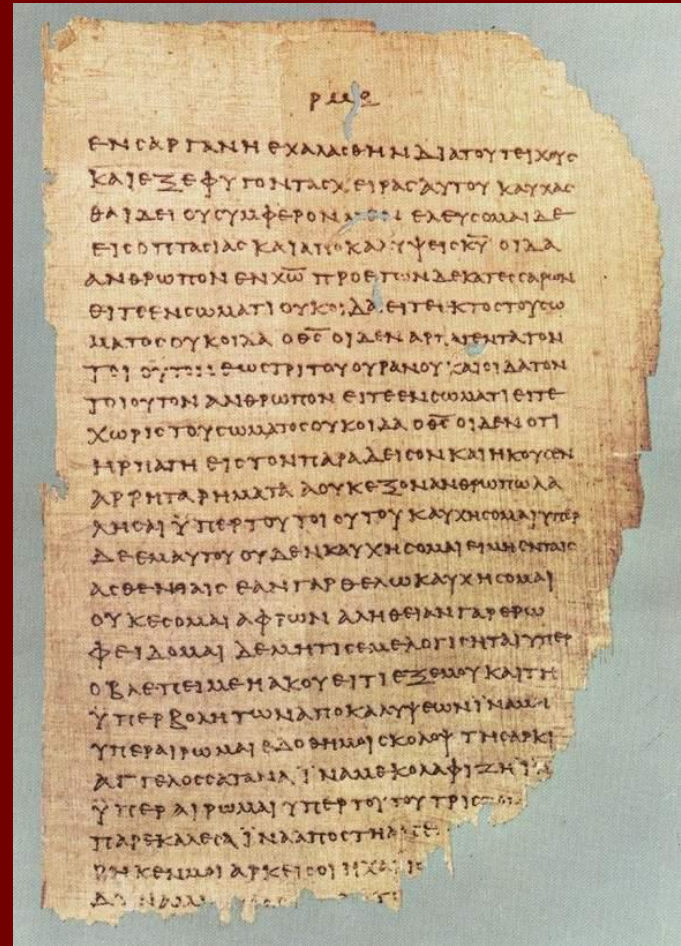 ΡΜΘ
ΕΝΣΑΡΓΑΝΗΕΧΑΛΑΣΘΗΝΔΙΑΤΟΥΤΕΙΧΟΥΣ
ΚΑΙΕΞΕΦΥΓΟΝΤΑΣΧΕΙΡΑΣΑΥΤΟΥΚΑΥΧΑΣ
ΘΑΙΔΕΙΟΥΣΥΜΦΕΡΟΝ ΕΛΕΥΣΟΜΑΙΔΕ
ΕΙΣΟΠΤΑΣΙΑΣΚΑΙΑΠΟΚΑΛΥΨΕΙΣΚ̅Υ̅ ΟΙΔΑ
ΑΝΘΡΩΠΟΝΕΝΧ̅Ω̅ ΠΡΟΕΤΩΝΔΕΚΑΤΕΣΣΑΡΩΝ
ΕΙΤΕΕΝΣΩΜΑΤΙΟΥΚΟΙΔΑΕΙΤΕΙΚΤΟΣΤΟΥΣΩ
ΜΑΤΟΣΟΥΚΟΙΔΑ ΟΘ̅Σ̅ ΟΙΔΕΝΑΡΠΑΓΕΝΤΑΤΟΝ
ΕΩΣΤΡΙΤΟΥΟΥΡΑΝΟΥΚΑΙΟΙΔΑΤΟΝ
ΤΟΙΟΥΤΟΝΑΝΘΡΩΠΟΝΕΙΤΕΕΝΣΩΜΑΤΙΕΙΤΕ
ΧΩΡΙΣΤΟΥΣΩΜΑΤΟΣΟΥΚΟΙΔΑ ΟΘ̅Σ̅ ΟΙΔΕΝΟΤΙ
ΗΡΠΑΓΗΕΙΣΤΟΝΠΑΡΑΔΕΙΣΟΝΚΑΙΗΚΟΥΣΕΝ
ΑΡΡΗΤΑΡΗΜΑΤΑΑΟΥΚΕΞΟΝΑΝΘΡΩΠΩΛΑ
ΛΗΣΑΙΫΠΕΡΤΟΥΤΟΙΟΥΤΟΥΚΑΥΧΗΣΟΜΑΙΥΠΕΡ
ΔΕΕΜΑΥΤΟΥΟΥΔΕΝΚΑΥΧΗΣΟΜΑΙΕΙΜΗΕΝΤΑΙΣ
ΑΣΘΕΝΙΑΙΣΕΑΝΓΑΡΘΕΛΩΚΑΥΧΗΣΟΜΑΙ
ΟΥΚΕΣΟΜΑΙΑΦΡΩΝΑΛΗΘΕΙΑΝΓΑΡΕΡΩ
ΦΕΙΔΟΜΑΙΔΕΜΗΤΙΣΕΜΕΛΟΓΙΣΗΤΑΙΥΠΕΡ
ΟΒΛΕΠΕΙΜΕΗΑΚΟΥΕΙΤΙΕΞΕΜΟΥΚΑΙΤΗ
ΫΠΕΡΒΟΛΗΤΩΝΑΠΟΚΑΛΥΨΕΩΝΪΝΑΜ
ΥΠΕΡΑΙΡΩΜΑΙΕΔΟΘΗΜΟΙΣΚΟΛΟΨΤΗΣΑΡΚΙ
ΑΓΓΕΛΟΣΣΑΤΑΝΑΪΝΑΜΕΚΟΛΑΦΙΖΗΪ
ΫΠΕΡΑΙΡΩΜΑΙΥΠΕΡΤΟΥΤΟΥΤΡΙΣ
ΠΑΡΕΚΑΛΕΣΑΪΝΑΑΠΟΣΤΗ
ΚΕΝΜΟΙΑΡΚΕΙΣΟΙΗΧΑΡΙΣ